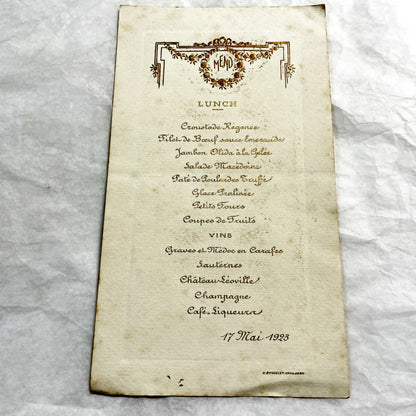 MENU
LUNCH
Croustade Régence
Filet de Bœuf sauce Emeraude
Jambon Olida à la Gelée
Salade Macédoine
Paté de Poulardes Truffé
Glace Pralinée
Petits Fours
Coupes de Fruits
VINS
Graves et Médoc en Carafes
Sauternes
Château-Léoville
Champagne
Café-Liqueurs
17 Mai 1923